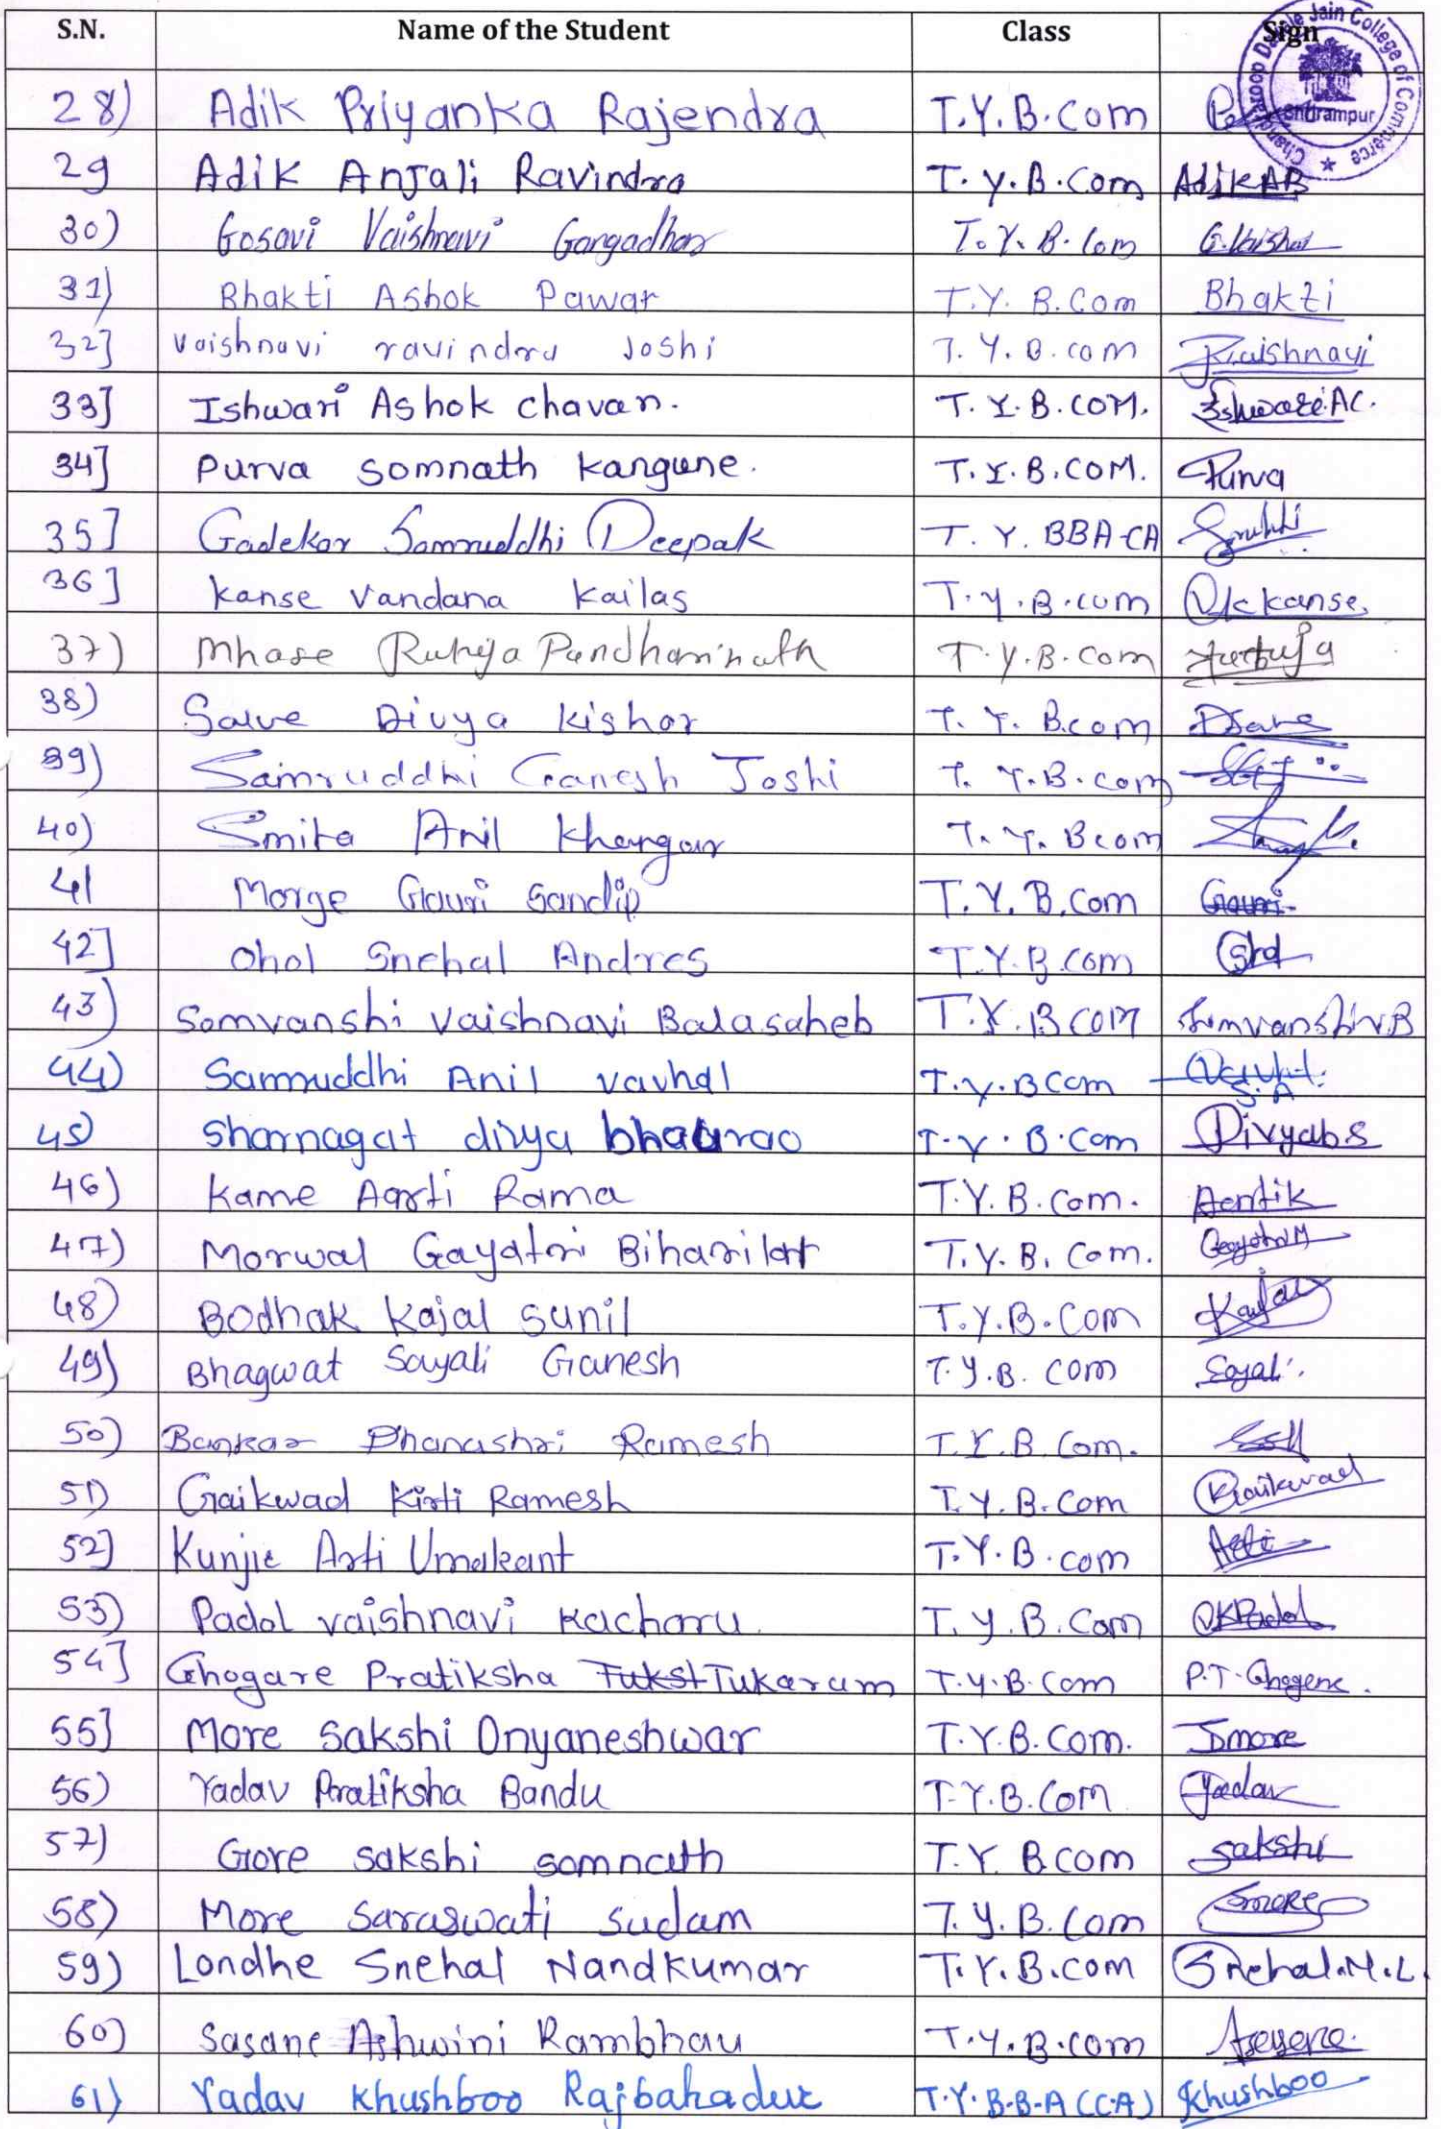 S.N. Name of the Student Class Sign
Jain College of Commerce
Shrirampur
28) Adik Priyanka Rajendra T.Y.B.Com
29 Adik Anjali Ravindra T.Y.B.Com AdikAB
30) Gosavi Vaishnavi Gangadhar T.Y.B.Com G.Vaishnavi
31) Bhakti Ashok Pawar T.Y.B.Com Bhakti
32] vaishnavi ravindra Joshi T.Y.B.com Vaishnavi
33] Ishwari Ashok chavan. T.Y.B.COM. Ishwari.AC.
34] Purva somnath kangune. T.Y.B.COM. Purva
35] Gadekar Samruddhi Deepak T.Y. BBA-CA
36] kanse vandana kailas T.Y.B.com Vkkanse.
37) Mhase Rutuja Pandharinath T.Y.B.com Rutuja
38) Salve Divya kishor T.Y. B.com
39) Samruddhi Ganesh Joshi T.Y.B.com
40) Smita Anil Khengar T.Y. Bcom
41 Morge Gauri Sandip T.Y.B.Com Gauri
42] Ohol Snehal Andres T.Y.B.com
43) Somvanshi vaishnavi Balasaheb T.Y.BCOM SomvanshiV.B
44) Samruddhi Anil vavhal T.y.BCom S.A
45) Sharnagat divya bhaurao T.Y.B.Com Divyabs
46) Kame Aarti Rama T.Y.B.Com. Aartik
47) Morwal Gayatri Biharilal T.Y.B. Com. GayatriM
48) Bodhak kajal sunil T.Y.B.Com Kajal
49) Bhagwat Sayali Ganesh T.Y.B. Com Sayali
50) Bankar Dhanashri Ramesh T.Y.B.Com.
51) Gaikwad Kirti Ramesh T.Y.B.Com KGaikwad
52] Kunjir Arti Umakant T.Y.B.com Arti
53) Padol vaishnavi kacharu. T.Y.B.Com VKPadol
54] Ghogare Pratiksha Tukaram T.Y.B.Com P.T.Ghogare.
55] More Sakshi Dnyaneshwar T.Y.B.Com. Smore
56) Yadav Pratiksha Bandu T.Y.B.Com Yadav
57) Gore sakshi somnath T.Y. B.com sakshi
58) More saraswati sudam T.Y.B.Com Smore
59) Londhe Snehal Nandkumar T.Y.B.com Snehal.N.L.
60) Sasane Ashwini Rambhau T.Y.B.com
61) Yadav Khushboo Rajbahadur T.Y.B.B.A (C.A) Khushboo